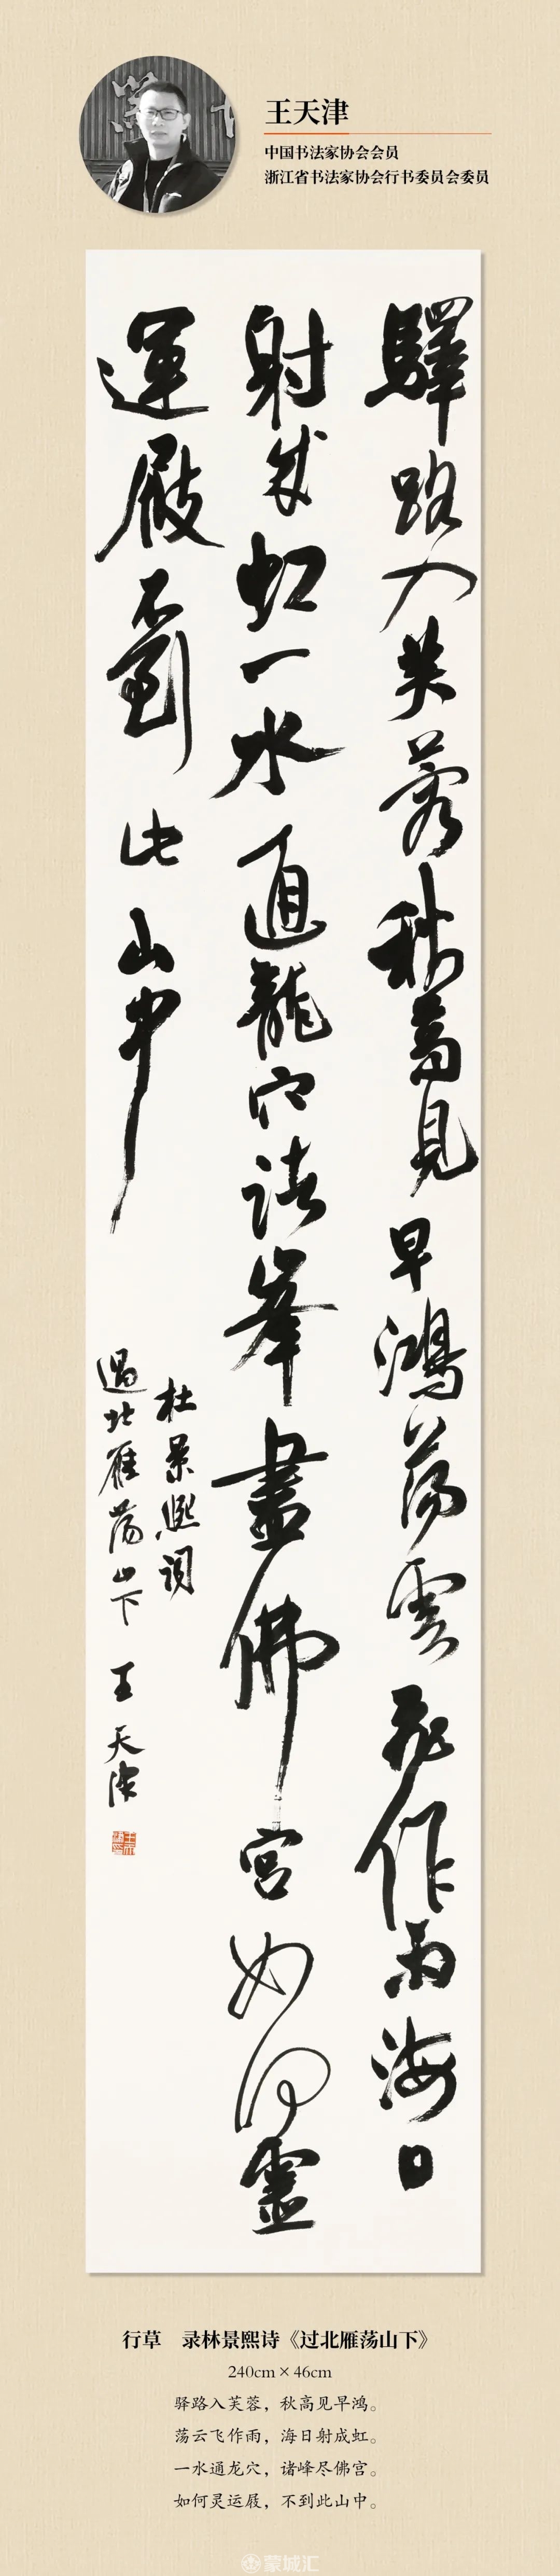 王天津
中国书法家协会会员
浙江省书法家协会行书委员会委员
驛路入芙蓉秋高見早鴻蕩雲飛作雨海日
射成虹一水通龍穴諸峯盡佛宮如何靈
運屐不到此山中
杜景熙詞
過北雁蕩山下 王天津
行草 录林景熙诗《过北雁荡山下》
240cm×46cm
驿路入芙蓉，秋高见早鸿。
荡云飞作雨，海日射成虹。
一水通龙穴，诸峰尽佛宫。
如何灵运屐，不到此山中。
蒙城汇